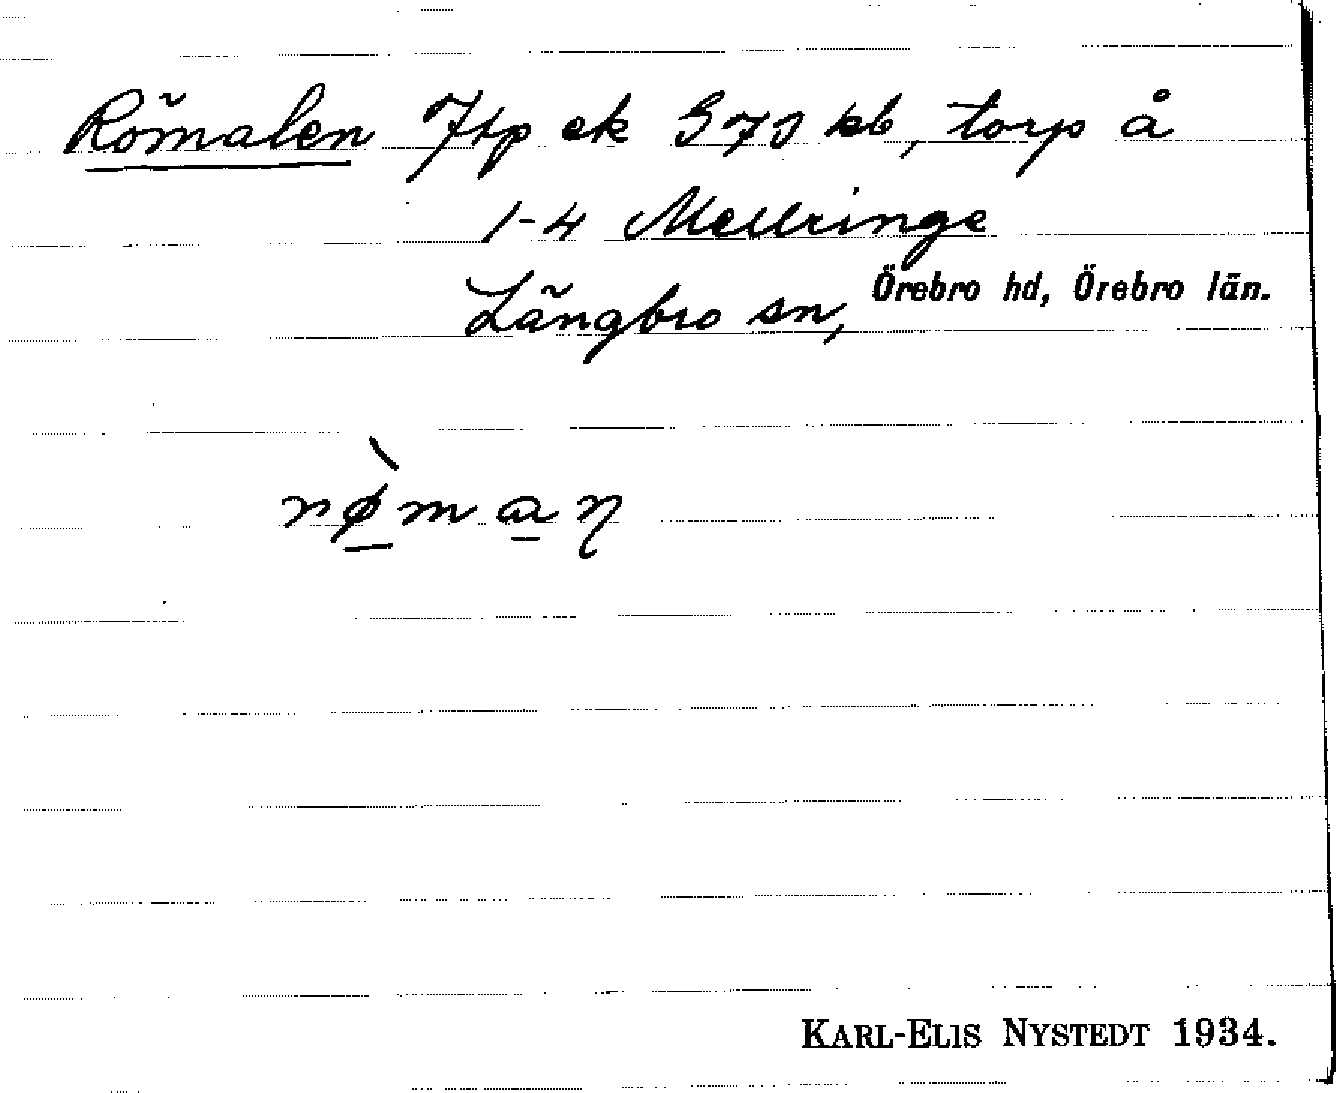 Römalen Jtp ek S70 kb, torp å
1-4 Mellringe
Längbro sn, Örebro hd, Örebro län.
KARL-ELIS NYSTEDT 1934.